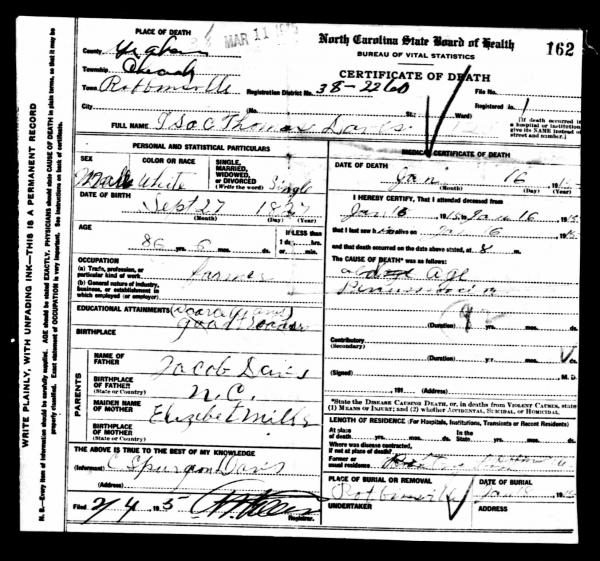 MAR 11
North Carolina State Board of Health
162
BUREAU OF VITAL STATISTICS
CERTIFICATE OF DEATH
PLACE OF DEATH
County Graham
Township Cheoah
Town Robbinsville
Registration District No. 38-2260
File No.
Registered No. 1
City (No. St.; Ward)
[If death occurred in a hospital or institution give its NAME instead of street and number.]
FULL NAME Isac Thomas Davis
PERSONAL AND STATISTICAL PARTICULARS
SEX Male
COLOR OR RACE White
SINGLE, MARRIED, WIDOWED, OR DIVORCED (Write the word) Single
DATE OF BIRTH
Sept 27 18
(Month) (Day) (Year)
AGE
86 yrs. mos. ds.
If LESS than 1 day, hrs. or min.
OCCUPATION
(a) Trade, profession, or particular kind of work. farmer
(b) General nature of industry, business, or establishment in which employed (or employer)
EDUCATIONAL ATTAINMENTS
good Reader
BIRTHPLACE
PARENTS
NAME OF FATHER Jacob Davis
BIRTHPLACE OF FATHER (State or Country) N.C.
MAIDEN NAME OF MOTHER Elizabet Mills
BIRTHPLACE OF MOTHER (State or Country)
THE ABOVE IS TRUE TO THE BEST OF MY KNOWLEDGE
(Informant) C Spurgeon Davis
(Address)
Filed 2/4 1915
Registrar.
MEDICAL CERTIFICATE OF DEATH
DATE OF DEATH
Jan 16 191
(Month) (Day) (Year)
I HEREBY CERTIFY, That I attended deceased from
Jan 191 Jan 16 191
that I last saw h alive on 16 191
and that death occurred on the date above stated, at 8 m.
The CAUSE OF DEATH* was as follows:
old age
(Duration) yrs. mos. ds.
Contributory (Secondary)
(Duration) yrs. mos. ds.
(Signed) M.D.
191 (Address)
*State the DISEASE CAUSING DEATH, or, in deaths from VIOLENT CAUSES, state (1) MEANS OF INJURY; and (2) whether ACCIDENTAL, SUICIDAL, OR HOMICIDAL.
LENGTH OF RESIDENCE (For Hospitals, Institutions, Transients or Recent Residents)
At place of death yrs. mos. ds. In the State yrs. mos. ds.
Where was disease contracted, if not at place of death?
Former or usual residence
PLACE OF BURIAL OR REMOVAL Robbinsville
DATE OF BURIAL Jan 191
UNDERTAKER
ADDRESS
WRITE PLAINLY, WITH UNFADING INK—THIS IS A PERMANENT RECORD
N. B.—Every item of information should be carefully supplied. AGE should be stated EXACTLY. PHYSICIANS should state CAUSE OF DEATH in plain terms, so that it may be properly classified. Exact statement of OCCUPATION is very important. See instructions on back of certificate.